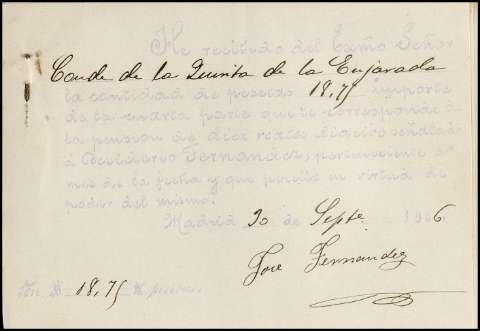 He recibido del Exmo Señor
Conde de la Quinta de la Enjarada
la cantidad de pesetas 18,75 importe
de la cuarta parte que le corresponde á
la pension de diez reales diarios señalada
á Fernandez, perteneciente al
mes de la fecha y que percibo en virtud de
poder del mismo.
Madrid 30 de Septe 1906.
José Fernandez
Son # 18,75 #